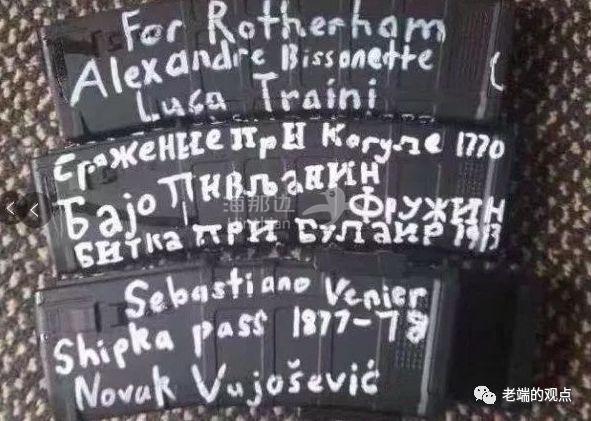 For Rotherham
Alexandre Bissonette
Luca Traini
Сражение при Кагуле 1770
Бајо Пивљанин
Фружин
Битка при Булаир 1913
海那边
Sebastiano Venier
Shipka pass 1877-78
Novak Vujošević
老端的观点